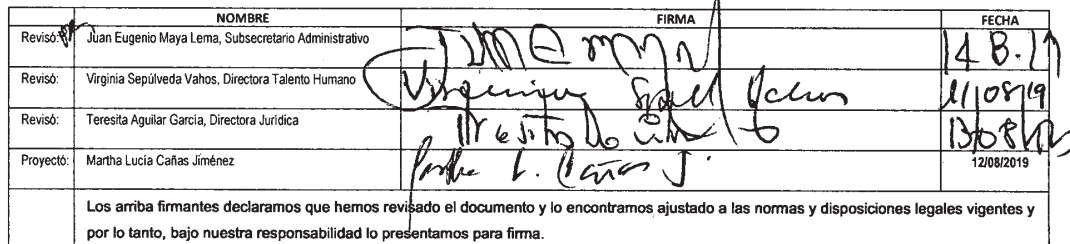 NOMBRE FIRMA FECHA
Revisó: Juan Eugenio Maya Lema, Subsecretario Administrativo
Revisó: Virginia Sepúlveda Vahos, Directora Talento Humano
Revisó: Teresita Aguilar García, Directora Jurídica
Proyectó: Martha Lucía Cañas Jiménez Martha L. Cañas J. 12/08/2019
Los arriba firmantes declaramos que hemos revisado el documento y lo encontramos ajustado a las normas y disposiciones legales vigentes y
por lo tanto, bajo nuestra responsabilidad lo presentamos para firma.